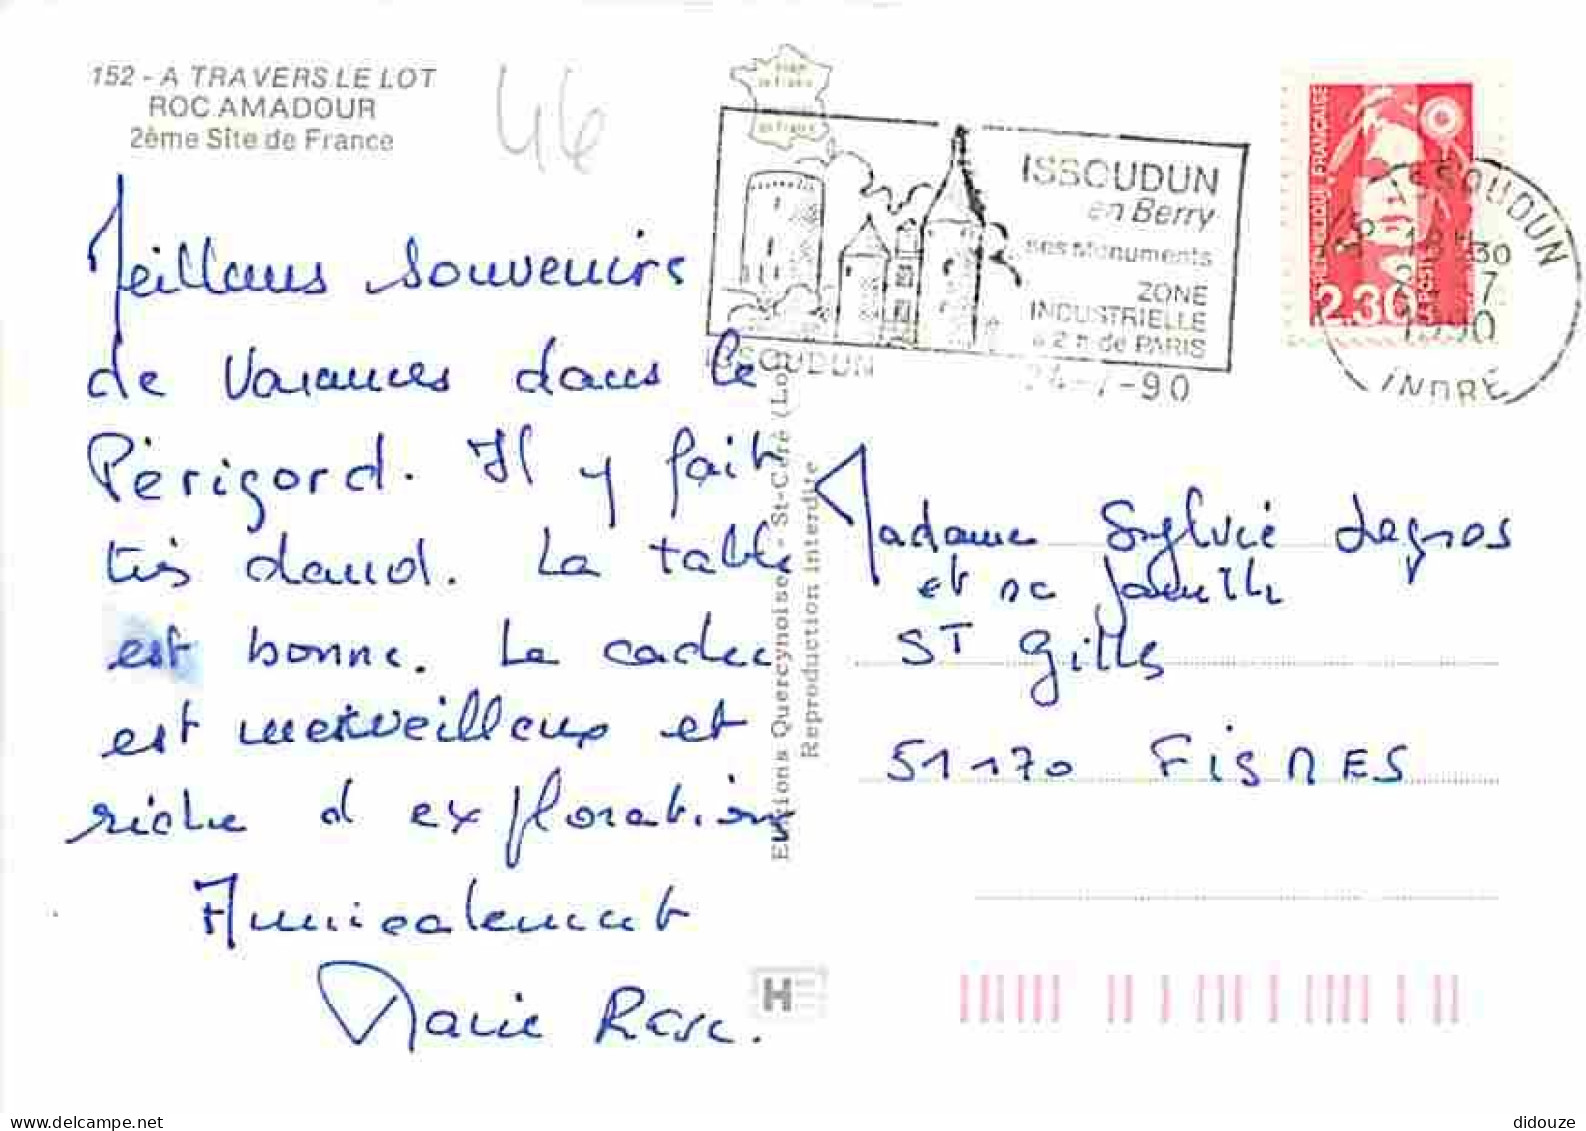 152 - A TRAVERS LE LOT
ROCAMADOUR
2ème Site de France
46
Meilleurs souvenirs
de Vacances dans le
Périgord. Il y fait
très chaud. La table
est bonne. Le cadre
est merveilleux et
riche d explorations
Amicalement
Marie Rose.
Editions Quercynoises - St-Céré (Lot)
Reproduction interdite
ISSOUDUN
en Berry
ses Monuments
ZONE
INDUSTRIELLE
à 2 h de PARIS
ISSOUDUN
24-7-90
REPUBLIQUE FRANÇAISE
2.30
LA POSTE
36 ISSOUDUN
1990
INDRE
Madame Sylvie Legros
et sa famille
ST Gilles
51170 FISMES
didouze